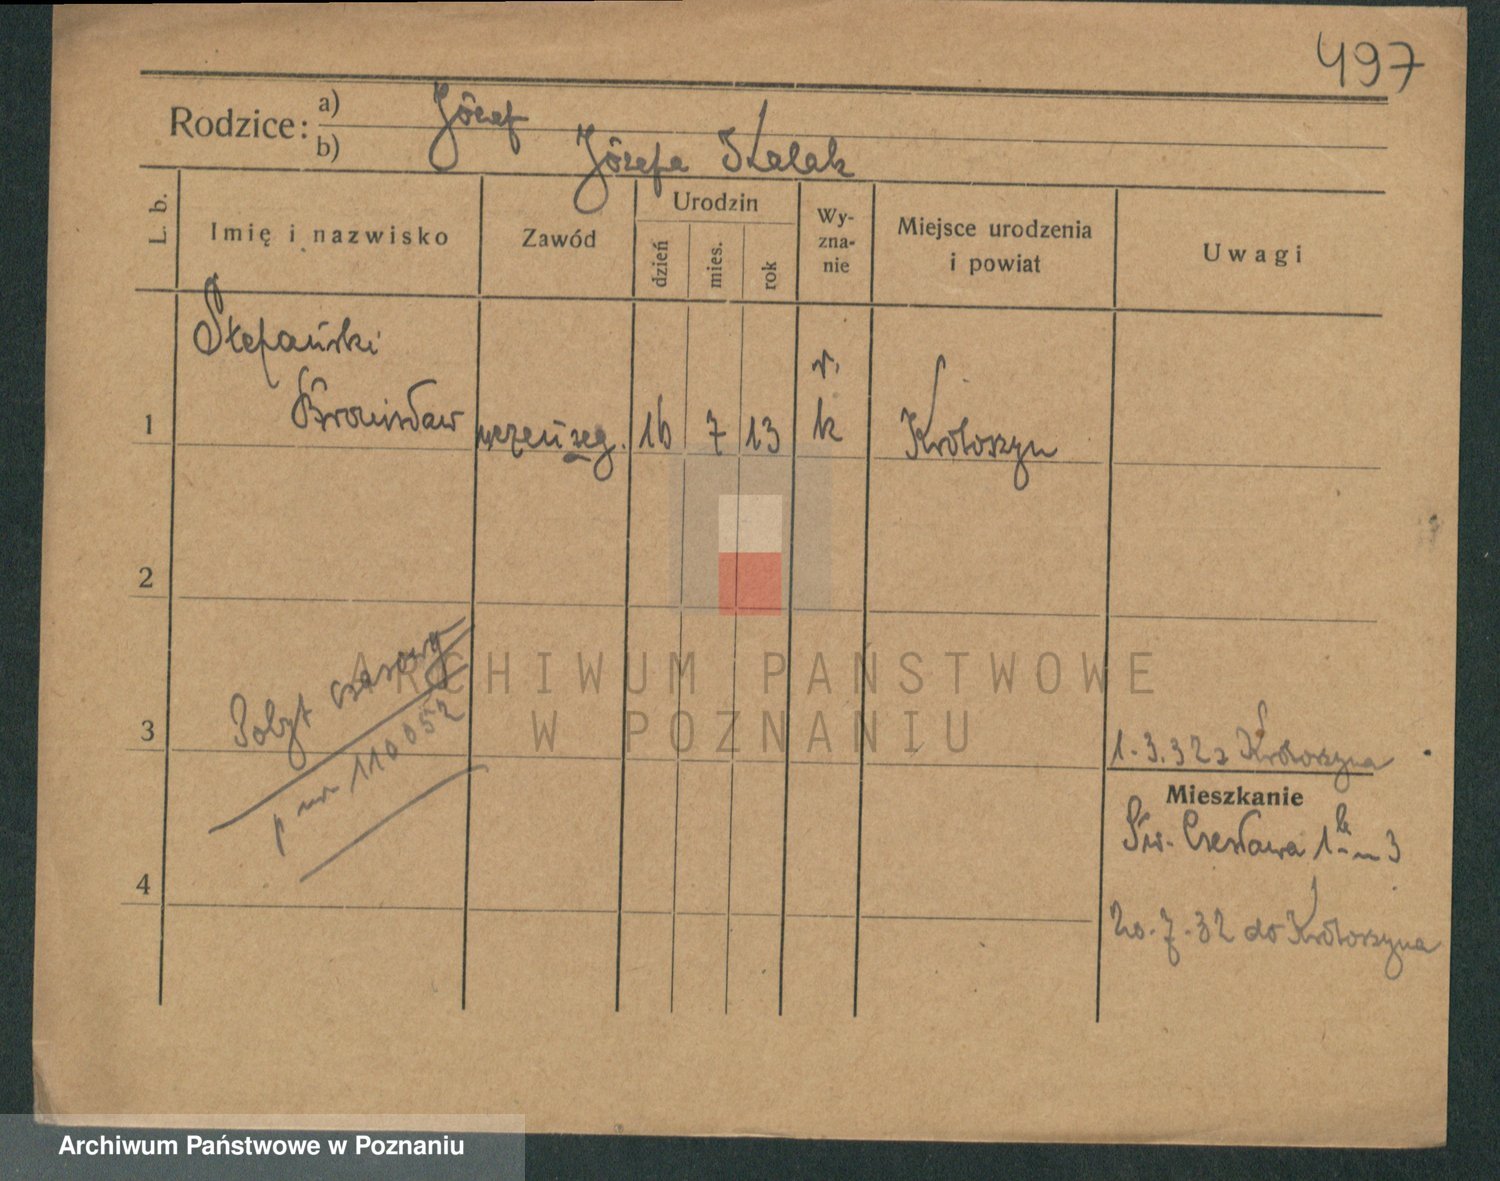 497
Rodzice: a) Józef
b) Józefa Skalak
L. b. Imię i nazwisko Zawód Urodzin dzień mies. rok Wy-zna-nie Miejsce urodzenia i powiat Uwagi
Stefański
1 Bronisław uczeń zeg. 16 7 13 r. k Krotoszyn
2
Pobyt czasowy
3
p nr 110052
4
1.3.32 z Krotoszyna
Mieszkanie
Św. Czesława 1 m 3
20.7.32 do Krotoszyna
ARCHIWUM PAŃSTWOWE
W POZNANIU
Archiwum Państwowe w Poznaniu